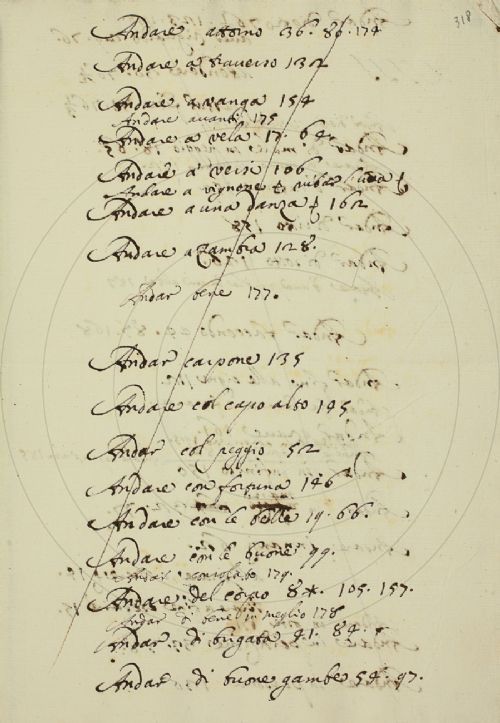 318
Andare attorno 36. 86. 174
Andare a traverso 132
Andare a vanga 154
Andare avanti 175
Andare a vela 17. 64.
Andare a veri 106
Andare a vignone ꝑ rubar l'uva
Andare a una danza 162
Andare a zambra 128.
Andar bene 177.
Andar carpone 135
Andare col capo alto 145
Andar col peggio 52
Andare con fortuna 146
Andare con le belle 19. 66.
Andare con le buone 99.
Andar 179.
Andare del corpo 8*. 105. 157.
Andar di bene in meglio 178
Andar di brigata 41. 84.
Andar di buone gambe 54. 97.